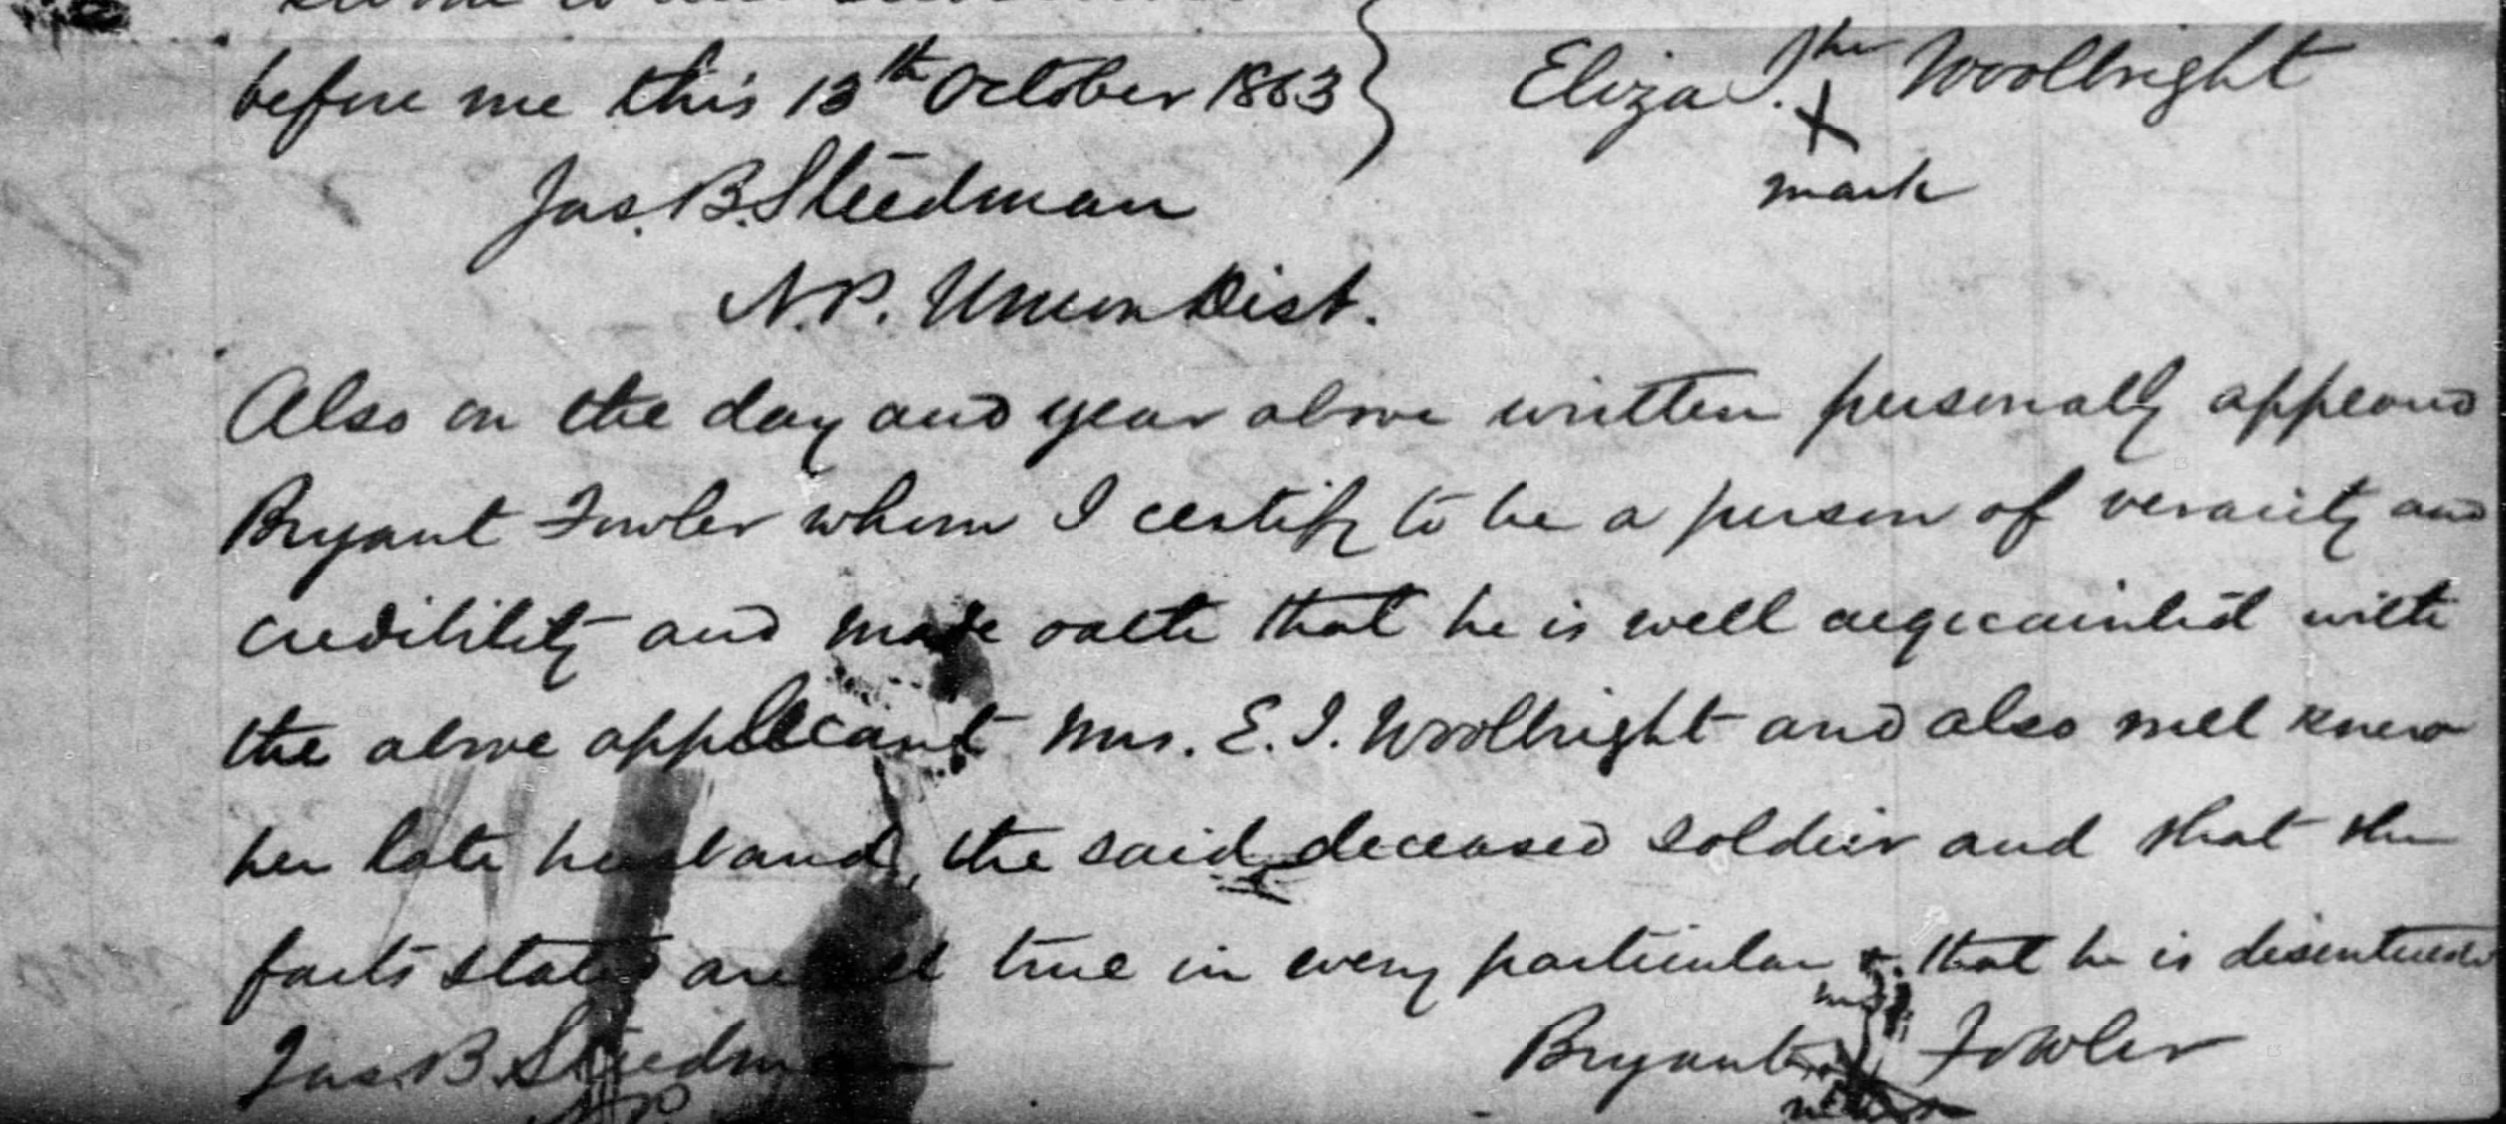 before me this 13th October 1863 } Eliza I. her Woolbright
X
Jas. B. Steedman mark
N.P. Union Dist.
Also on the day and year above written personally appeared
Bryant Fowler whom I certify to be a person of veracity and
credibility and made oath that he is well acquainted with
the above applicant Mrs. E. I. Woolbright and also well knew
her late husband, the said deceased soldier and that the
facts stated are all true in every particular & that he is disinterested
Jas. B. Steedman Bryant Fowler
N.P.